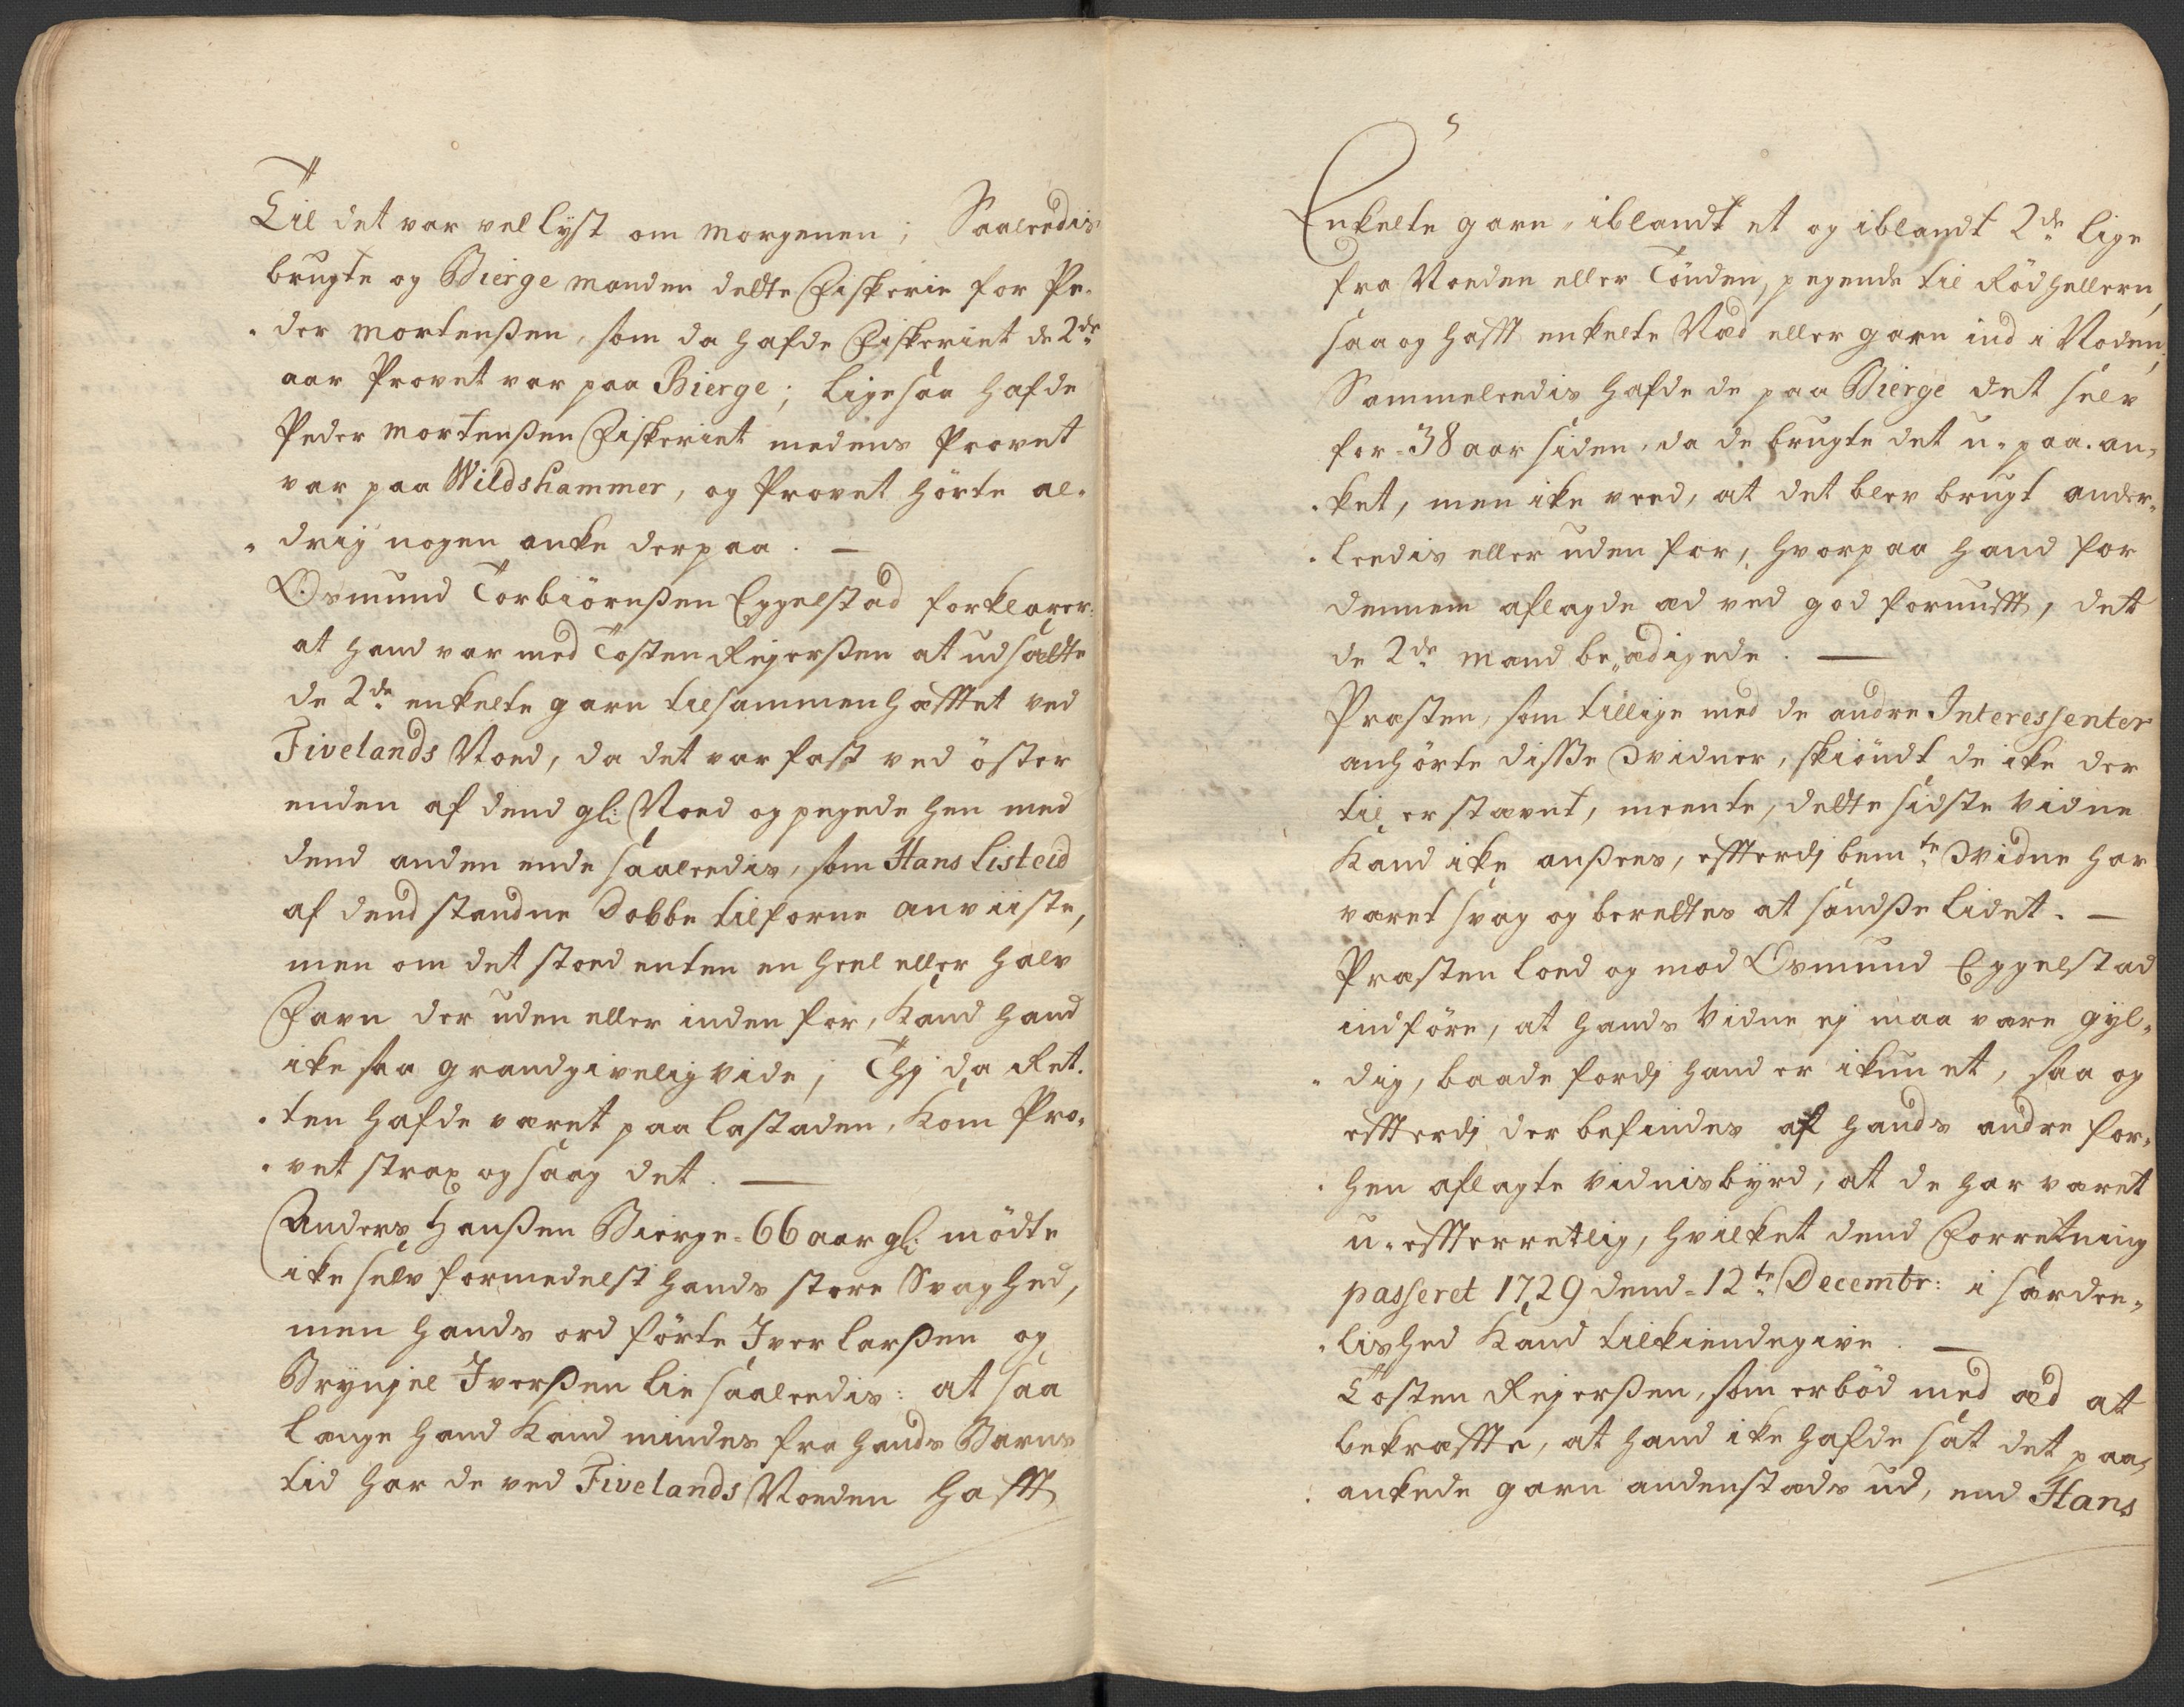 Til det var vel lyst om morgenen; Saaledis
brugte og Bierge manden delte Fiskerie for Pe-
der Mortenßen, som da hafde Fiskeriet de 2de
aar Provet var paa Bierge; ligesaa hafde
Peder Mortenßen Fiskeriet medens Provet
var paa Wildshammer, og Provet hørte al-
drig nogen anke derpaa. —
Osmund Torbiörnßen Eggelstad forklarer:
at hand var med Tosten Rejerßen at udsætte
de 2de enkelte garn tilsammenhæfftet ved
Fivelands Noed, da det var fast ved öster
enden af dend gl: Noed og pegede hen med
dend anden ende saaleedis, som Hans Listeid
af dend standne Dobbe tilforne anviiste,
men om det stoed enten en heel eller halv
Favn der uden eller inden for, Kand hand
ike saa grandgivelig vide; Thj da Ret-
ten hafde været paa lastaden, Kom Pro-
vet strax og saag det. —
Anders Hanßen Bierge = 66 aar gl: mödte
ike selv formedelst hands store Svaghed,
men hands ord förte Iver Larßen og
Brynjel Iverßen Lie saaleedis: at saa
længe hand Kand mindes fra hands Barns
tid har de ved Fivelands Noeden hafft
Enkelte garn, iblandt et og iblandt 2de lige
fra Noeden eller Tönden, pegende til Rödhellern,
saa og hafft enkelte Næd eller garn ind i Noden;
Sammeleedis hafde de paa Bierge det selv
for = 38 aar siden, da de brugte det u-paa-an-
ket, men ike veed, at det blev brugt ander-
leedis eller uden for, hvorpaa hand for
dennem aflagde æd ved god fornufft, det
de 2de mand be-ædigede. —
Præsten, som tillige med de andre Interessenter
anhörte disse Vidner, skiöndt de ike der
til er stævnt, meente, dette sidste Vidne
Kand ike anßees, effterdj bemte Vidne har
været svag og berettes at sandße lidet. —
Præsten loed og mod Osmund Eggelstad
indföre, at hands Vidne ej maa være gyl-
dig, baade fordj hand er ikun et, saa og
effterdj der befindes af hands andre for-
hen aflagte vidnisbyrd, at de har været
u-effterretlig, hvilket dend Forretning
passeret 1729 dend = 12te Decembr: i særdee-
lished Kand tilkiendegive. —
Tosten Rejerßen, som erböd med æd at
bekræffte, at hand ike hafde sat det paa-
ankede garn andenstæds ud, end Hans